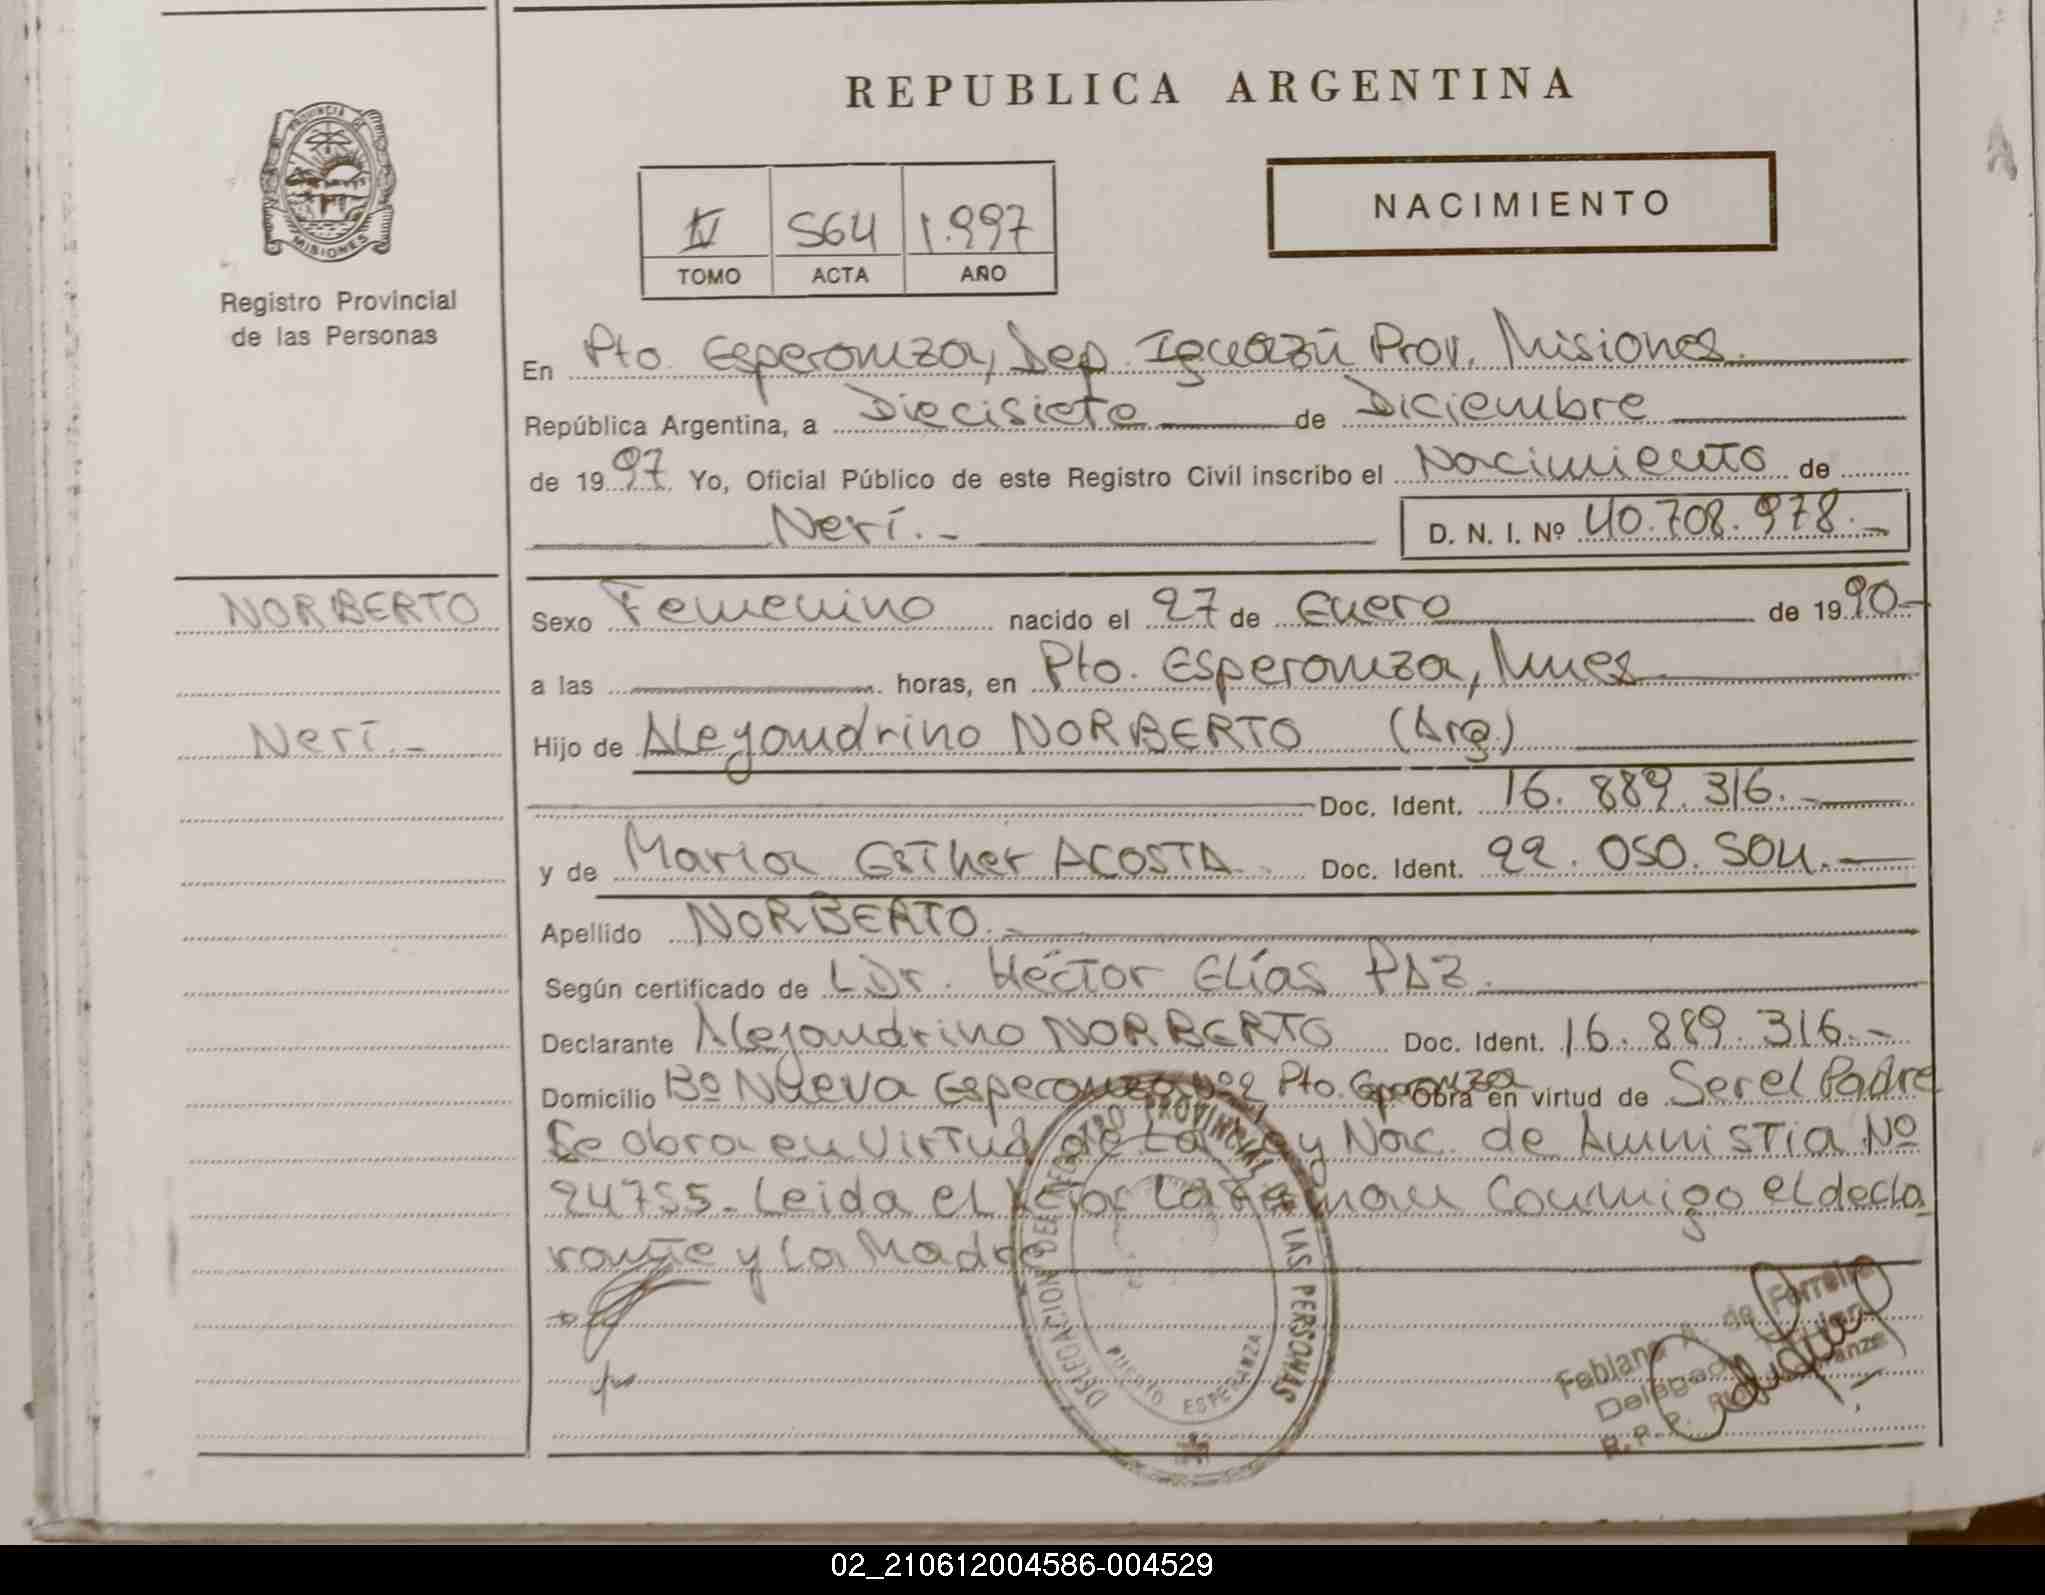 REPUBLICA ARGENTINA
PROVINCIA DE
MISIONES
Registro Provincial
de las Personas
IV 564 1.997
TOMO ACTA AÑO
NACIMIENTO
En Pto. Esperanza, Dep. Iguazú Prov. Misiones.
República Argentina, a Diecisiete de Diciembre
de 1997 Yo, Oficial Público de este Registro Civil inscribo el Nacimiento de
Nerí.- D. N. I. Nº 40.708.978.-
NORBERTO
Nerí.-
Sexo Femenino nacido el 27 de Enero de 1990-
a las horas, en Pto. Esperanza, Mnes
Hijo de Alejandrino NORBERTO (Arg.)
Doc. Ident. 16.889.316.-
y de María Esther ACOSTA Doc. Ident. 22.050.504.-
Apellido NORBERTO.-
Según certificado de Dr. Héctor Elías PAZ.
Declarante Alejandrino NORBERTO Doc. Ident. 16.889.316.-
Domicilio Bº Nueva Esperanza Nº2 Pto. Esperanza Obra en virtud de Ser el Padre
Se obra en virtud de La Ley Nac. de Amnistia Nº
24755. Leida el Acta La Firman Conmigo el decla
rante y La Madre
DELEGACION DEL REGISTRO PROVINCIAL DE LAS PERSONAS
PUERTO ESPERANZA
Fabiana A. de Ferreira
Delegada Titular
R. P. P.
02_210612004586-004529